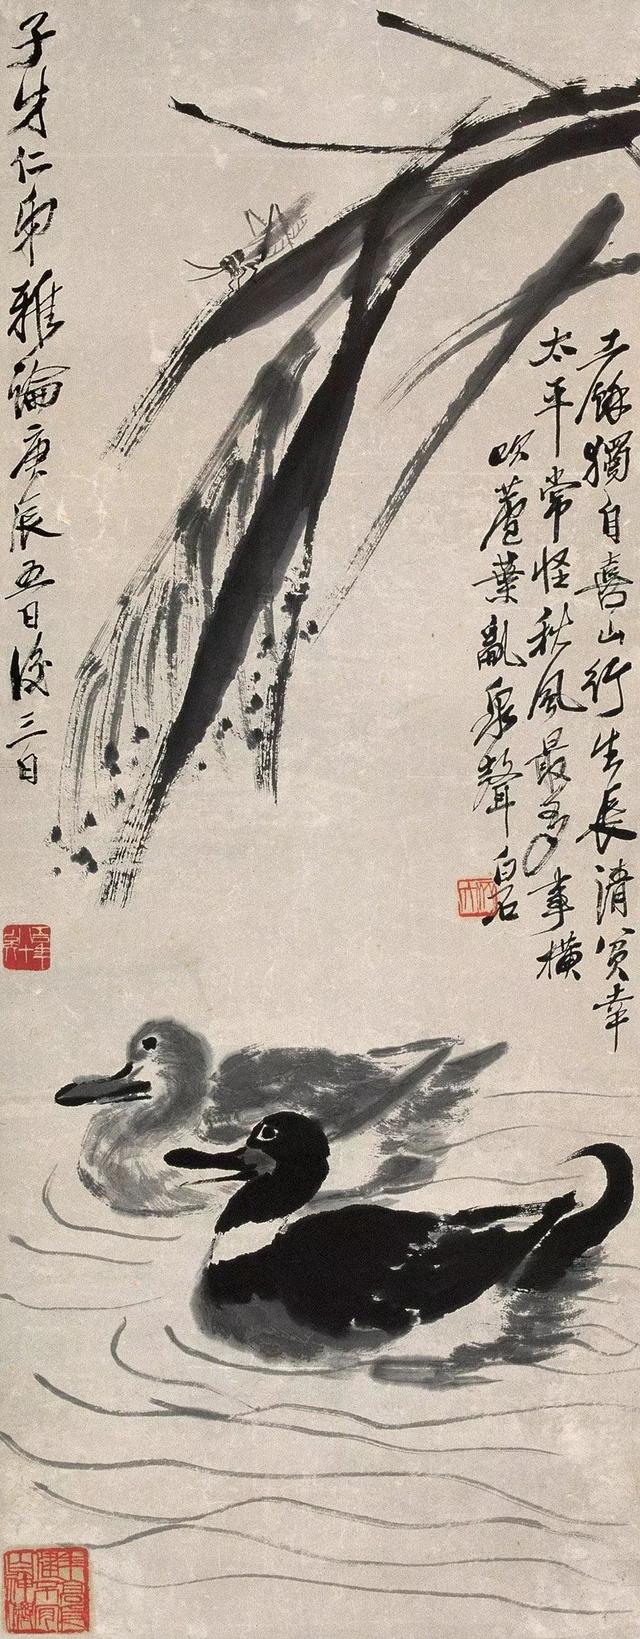 工餘獨自喜山行生長清貧幸
太平常怪秋風最多事橫
吹蘆葉亂泉聲 白石
子才仁弟雅論庚辰五日後三日